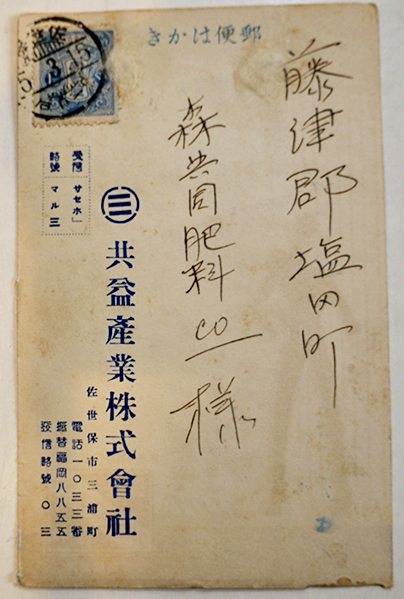 郵便はかき
藤津郡塩田町
森共同肥料co様
受信「サセホ」
略號 マル三
三 共益產業株式會社
佐世保市三浦町
電話一〇三三番
振替福岡八八五五
發信略號〇三